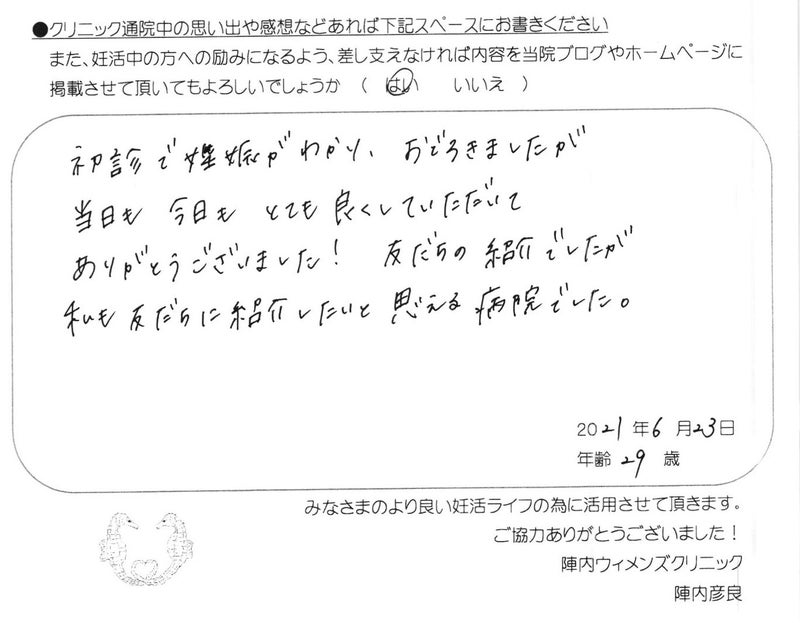 ●クリニック通院中の思い出や感想などあれば下記スペースにお書きください
また、妊活中の方への励みになるよう、差し支えなければ内容を当院ブログやホームページに
掲載させて頂いてもよろしいでしょうか （ はい いいえ ）
初診で妊娠がわかり、おどろきましたが
当日も 今日も とても良くしていただいて
ありがとうございました！ 友だちの紹介でしたが
私も友だちに紹介したいと思える病院でした。
2021年6月23日
年齢 29 歳
みなさまのより良い妊活ライフの為に活用させて頂きます。
ご協力ありがとうございました！
陣内ウィメンズクリニック
陣内彦良